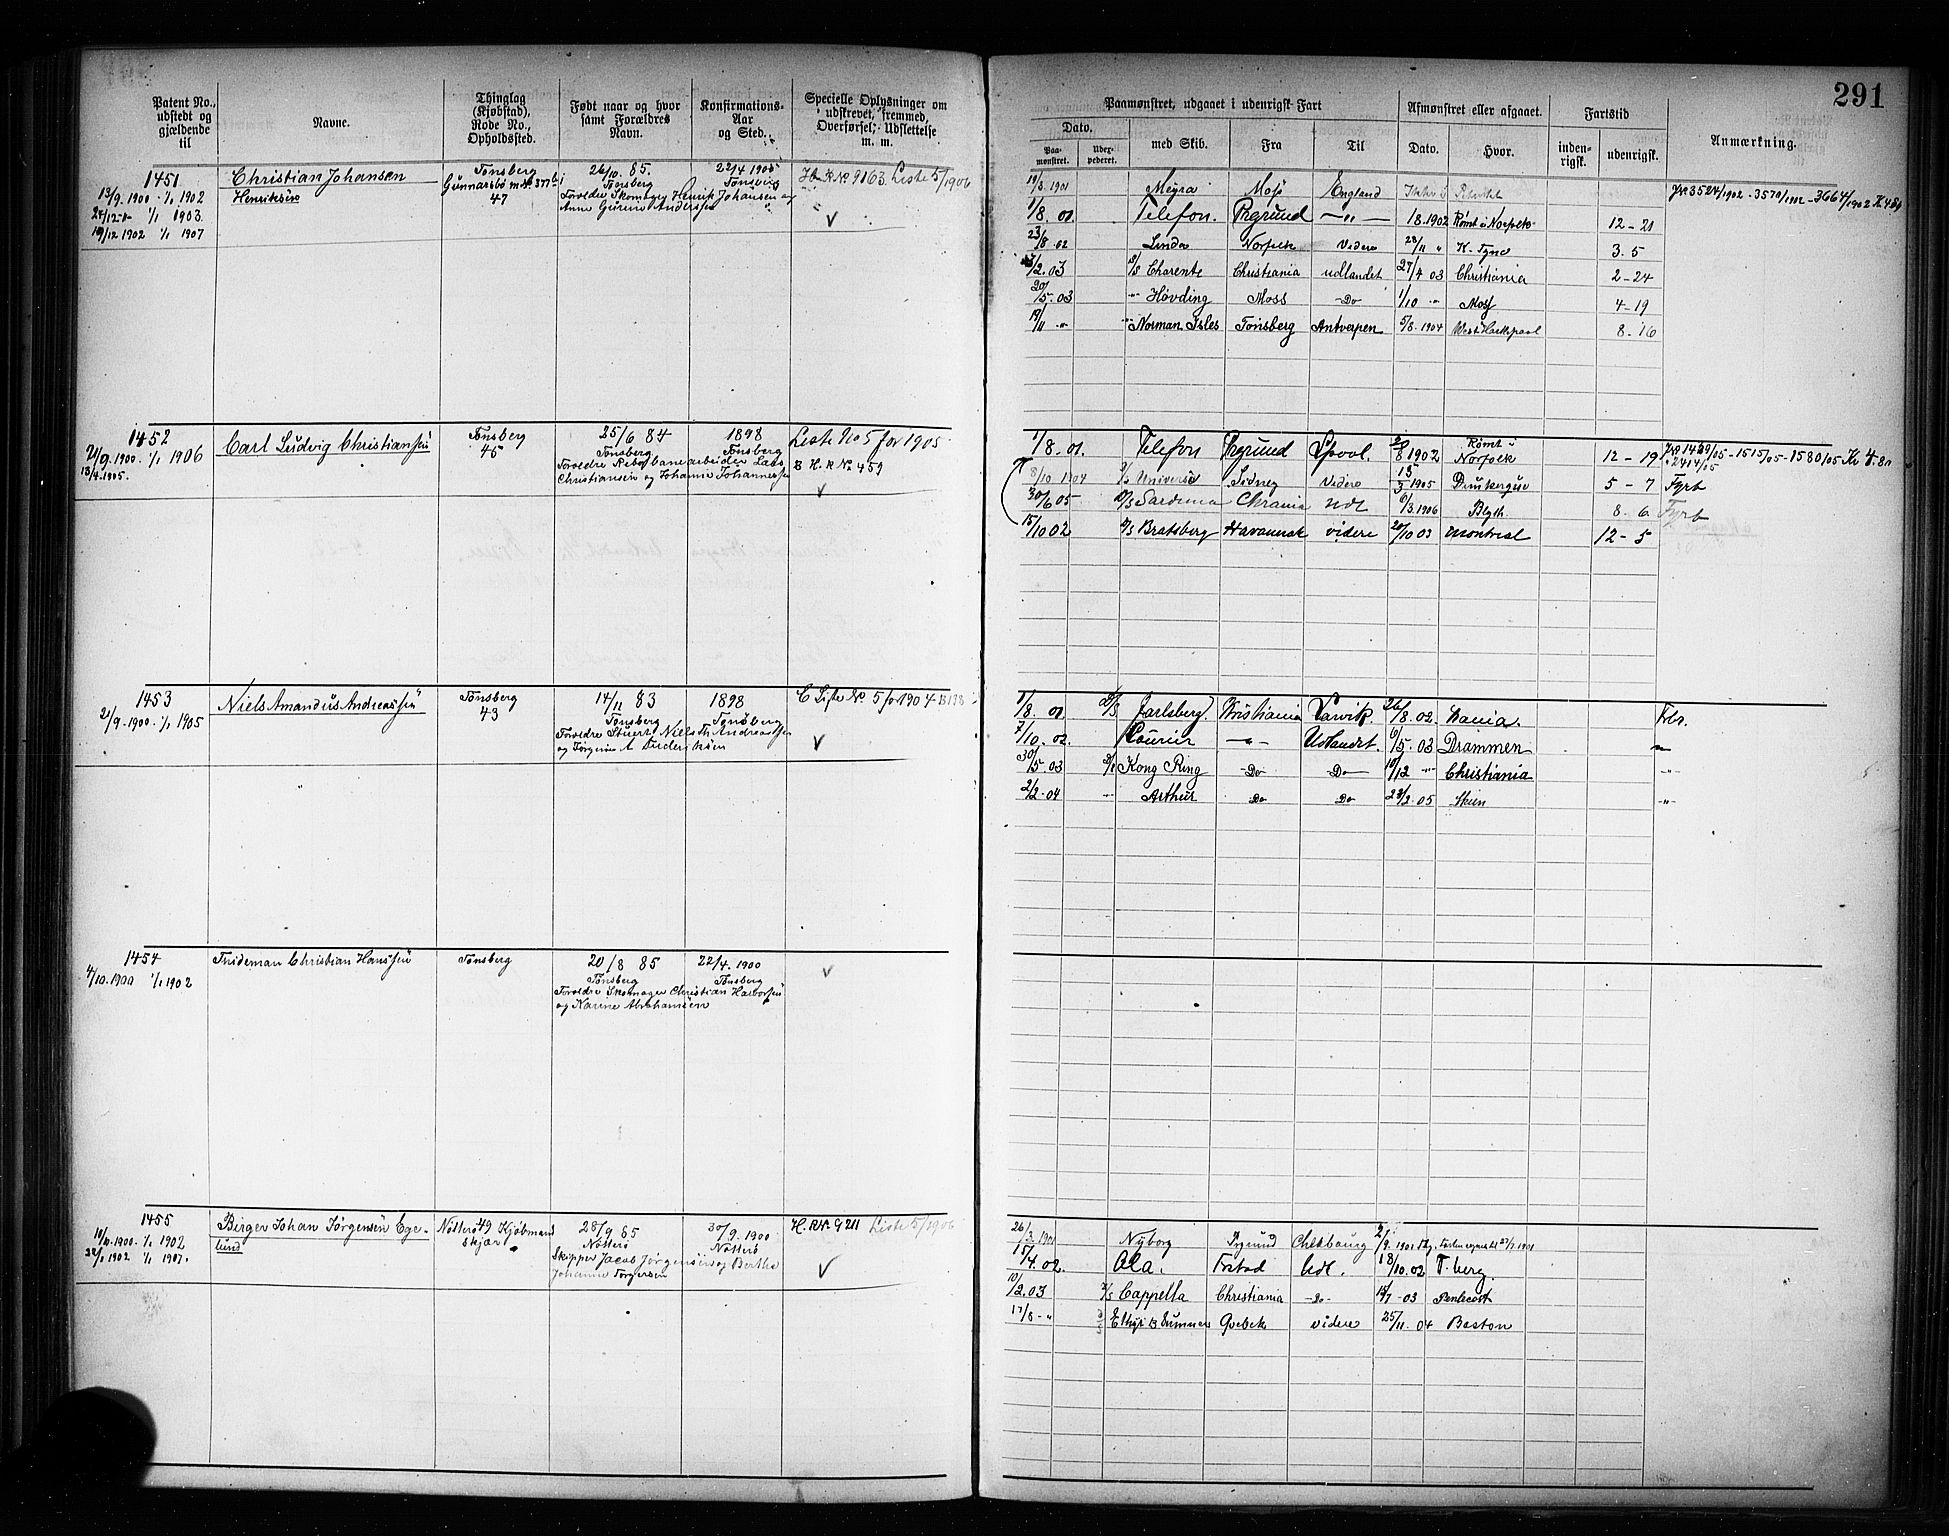 291
Patent No., udstedt og gjældende til
Navne.
Thinglag (Kjøbstad), Rode No., Opholdssted.
Født naar og hvor samt Forældres Navn.
Konfirmations-Aar og Sted.
Specielle Oplysninger om udskrevet, fremmed, Overførsel, Udslettelse m. m.
Paamønstret, udgaaet i udenrigsk Fart
Afmønstret eller afgaaet.
Fartstid
Anmærkning.
Dato.
Paa-mønstret.
Udex-pederet.
med Skib.
Fra
Til
Dato.
Hvor.
inden-rigsk.
udenrigsk.
1451
13/9. 1900 - 1/1 1902
1/1 1903.
19/12 1902 1/1 1907
Christian Johansen
Henriksen
Tønsberg
47
26/10. 85.
Tønsberg
Forældre Skomager Henrik Johansen og
Anne Gurine Anderssen
22/4 1900
Tønsberg
H. R. No. 9163. Liste 5/1906
19/3. 1901 Megra Moss England
1/8. 01. Telefon. Prgrund -"- 1/8. 1902 Rømt i Norfolk 12 - 21
23/8 02 Linda Norfolk Videre 28/11 " K. Tyne 3. 5
/2. 03 S/S Charente Christiania udlandet 27/4 03 Christiania 2 - 24
20/5. 03 -"- Høvding Moss -Do- 1/10 -"- Moss 4 - 19
19/11 -"- -"- Norman Isles Tønsberg Antverpen 5/8. 1904 West Hartlepool 8 - 16
Jr. 3524/1902 - 3570/1902 - 3664/1902
1452
21/9. 1900. 1/1 1906
13/4. 1905.
Carl Ludvig Christianssen
Tønsberg
45
25/6 84
Tønsberg
Forældre Reberbanearbeider Lars
Christiansen og Johanne Johannessen
1898
Tønsberg
Liste No 5 for 1905
B. H. R No. 459
1/8. 01. Telefon Prgrund Lpool. 2/8 1902 Rømt i Norfolk 12 - 19
8/10 1904 S/S Universe Sidney Videre 15/3 1905 Dunkerque 5 - 7 Fyrb
30/6 05 S/S Sardinia Chrania Udl 6/3. 1906 Blyth 8. 6 Fyrb
15/10 02 S/S Bratsberg Havannah videre 20/10 03 Montreal 12 - 5
1515/05 - 1580/05 Kr 4.80
2414/05
1453
21/9. 1900. 1/1 1905
Niels Amandus Andreassen
Tønsberg
43
14/11 83
Tønsberg
Forældre Stuert Niels Th Andreassen
og Jørgine A Frideriksen
1898
Tønsberg
C Liste No. 5 for 1904
1/8. 01 S/S Jarlsberg. Kristiania Larvik. 26/8. 02. Fbr.
7/10. 02. Courier -"- Udlandet. 6/5. 03 Drammen -"-
30/5. 03 S/S Kong Ring -Do- -Do- 10/12 -"- Christiania -"-
2/2. 04 -"- Arthur Do Do 23/2. 05 Skien -"-
1454
4/10. 1900 1/1 1902
Thideman Christian Hanssen
Tønsberg
20/8 85
Tønsberg
Forældre Skomager Christian Halvorsen
og Karine Abrahamsen
22/4. 1900
Tønsberg
1455
1/1 1902
22/1 1902 1/1 1907.
Birger Johan Jørgensen Ege-
lund
Nøtterø 49 Kjøbmand
skjær
28/9 85
Nøtterø
Skipper Jacob Jørgensen og Berthe
Johanne Torgersen
30/9. 1900
Nøtterø
H. R No. 9211 Liste 5/1906
26/3. 1901 Nyborg Prgrund Cherbourg 2/9. 1901
15/4. 02. Ala. Frstad Udl. 18/10. 02 T.berg.
10/2. 03 S/S Cappella Christiania -Do- 03
17/8 - " Ethyl B Sumner Qvebek videre 25/11. 04 Boston